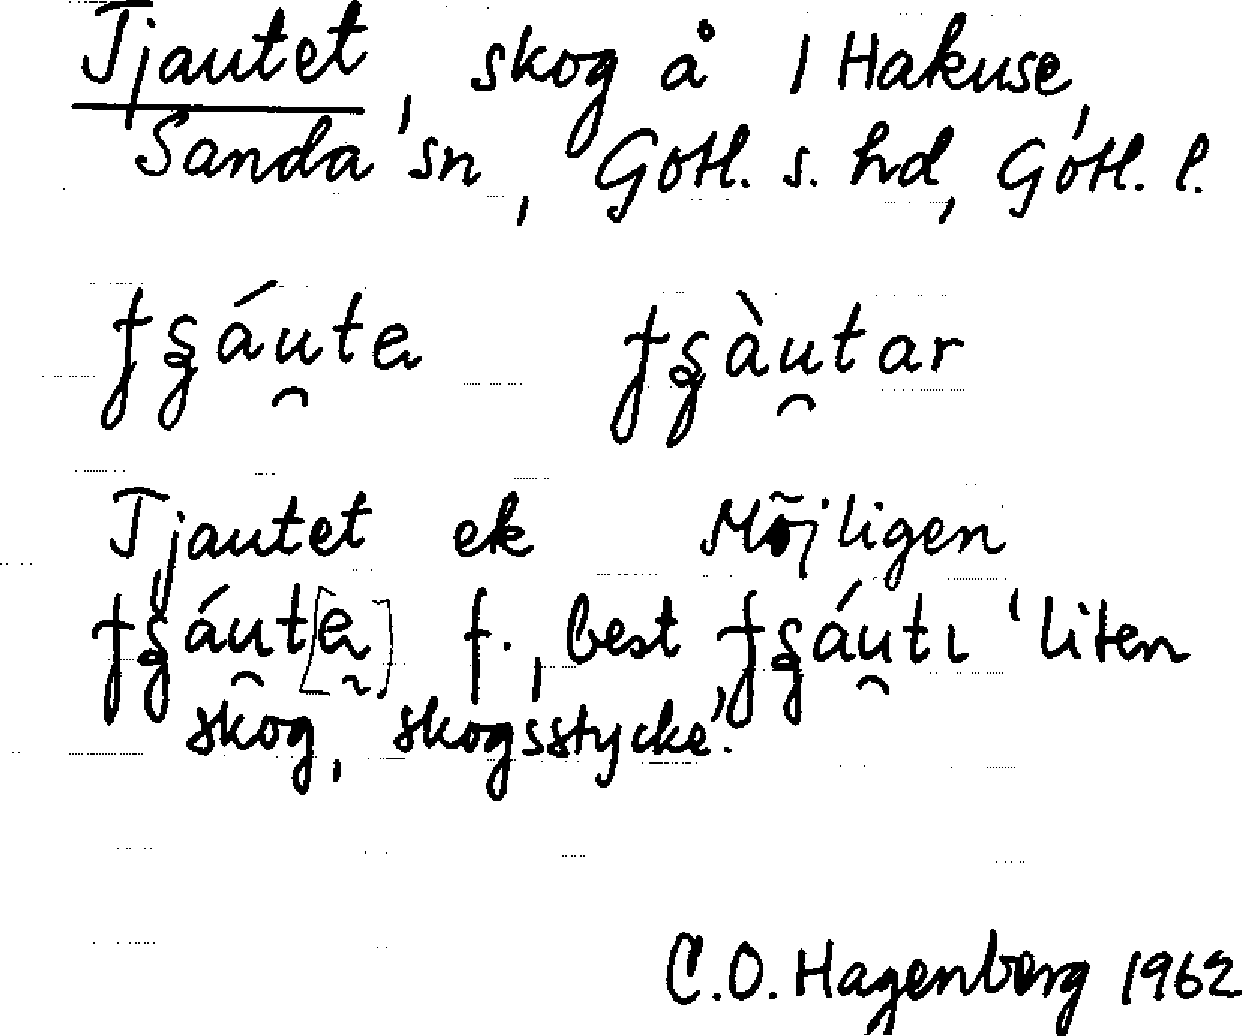 Tjautet, skog å 1 Hakuse,
Sanda sn, Gotl. s. hd, Gotl. l.
Tjautet ek Möjligen
f., best 'liten
skog, skogsstycke'.
C.O. Hagenberg 1962